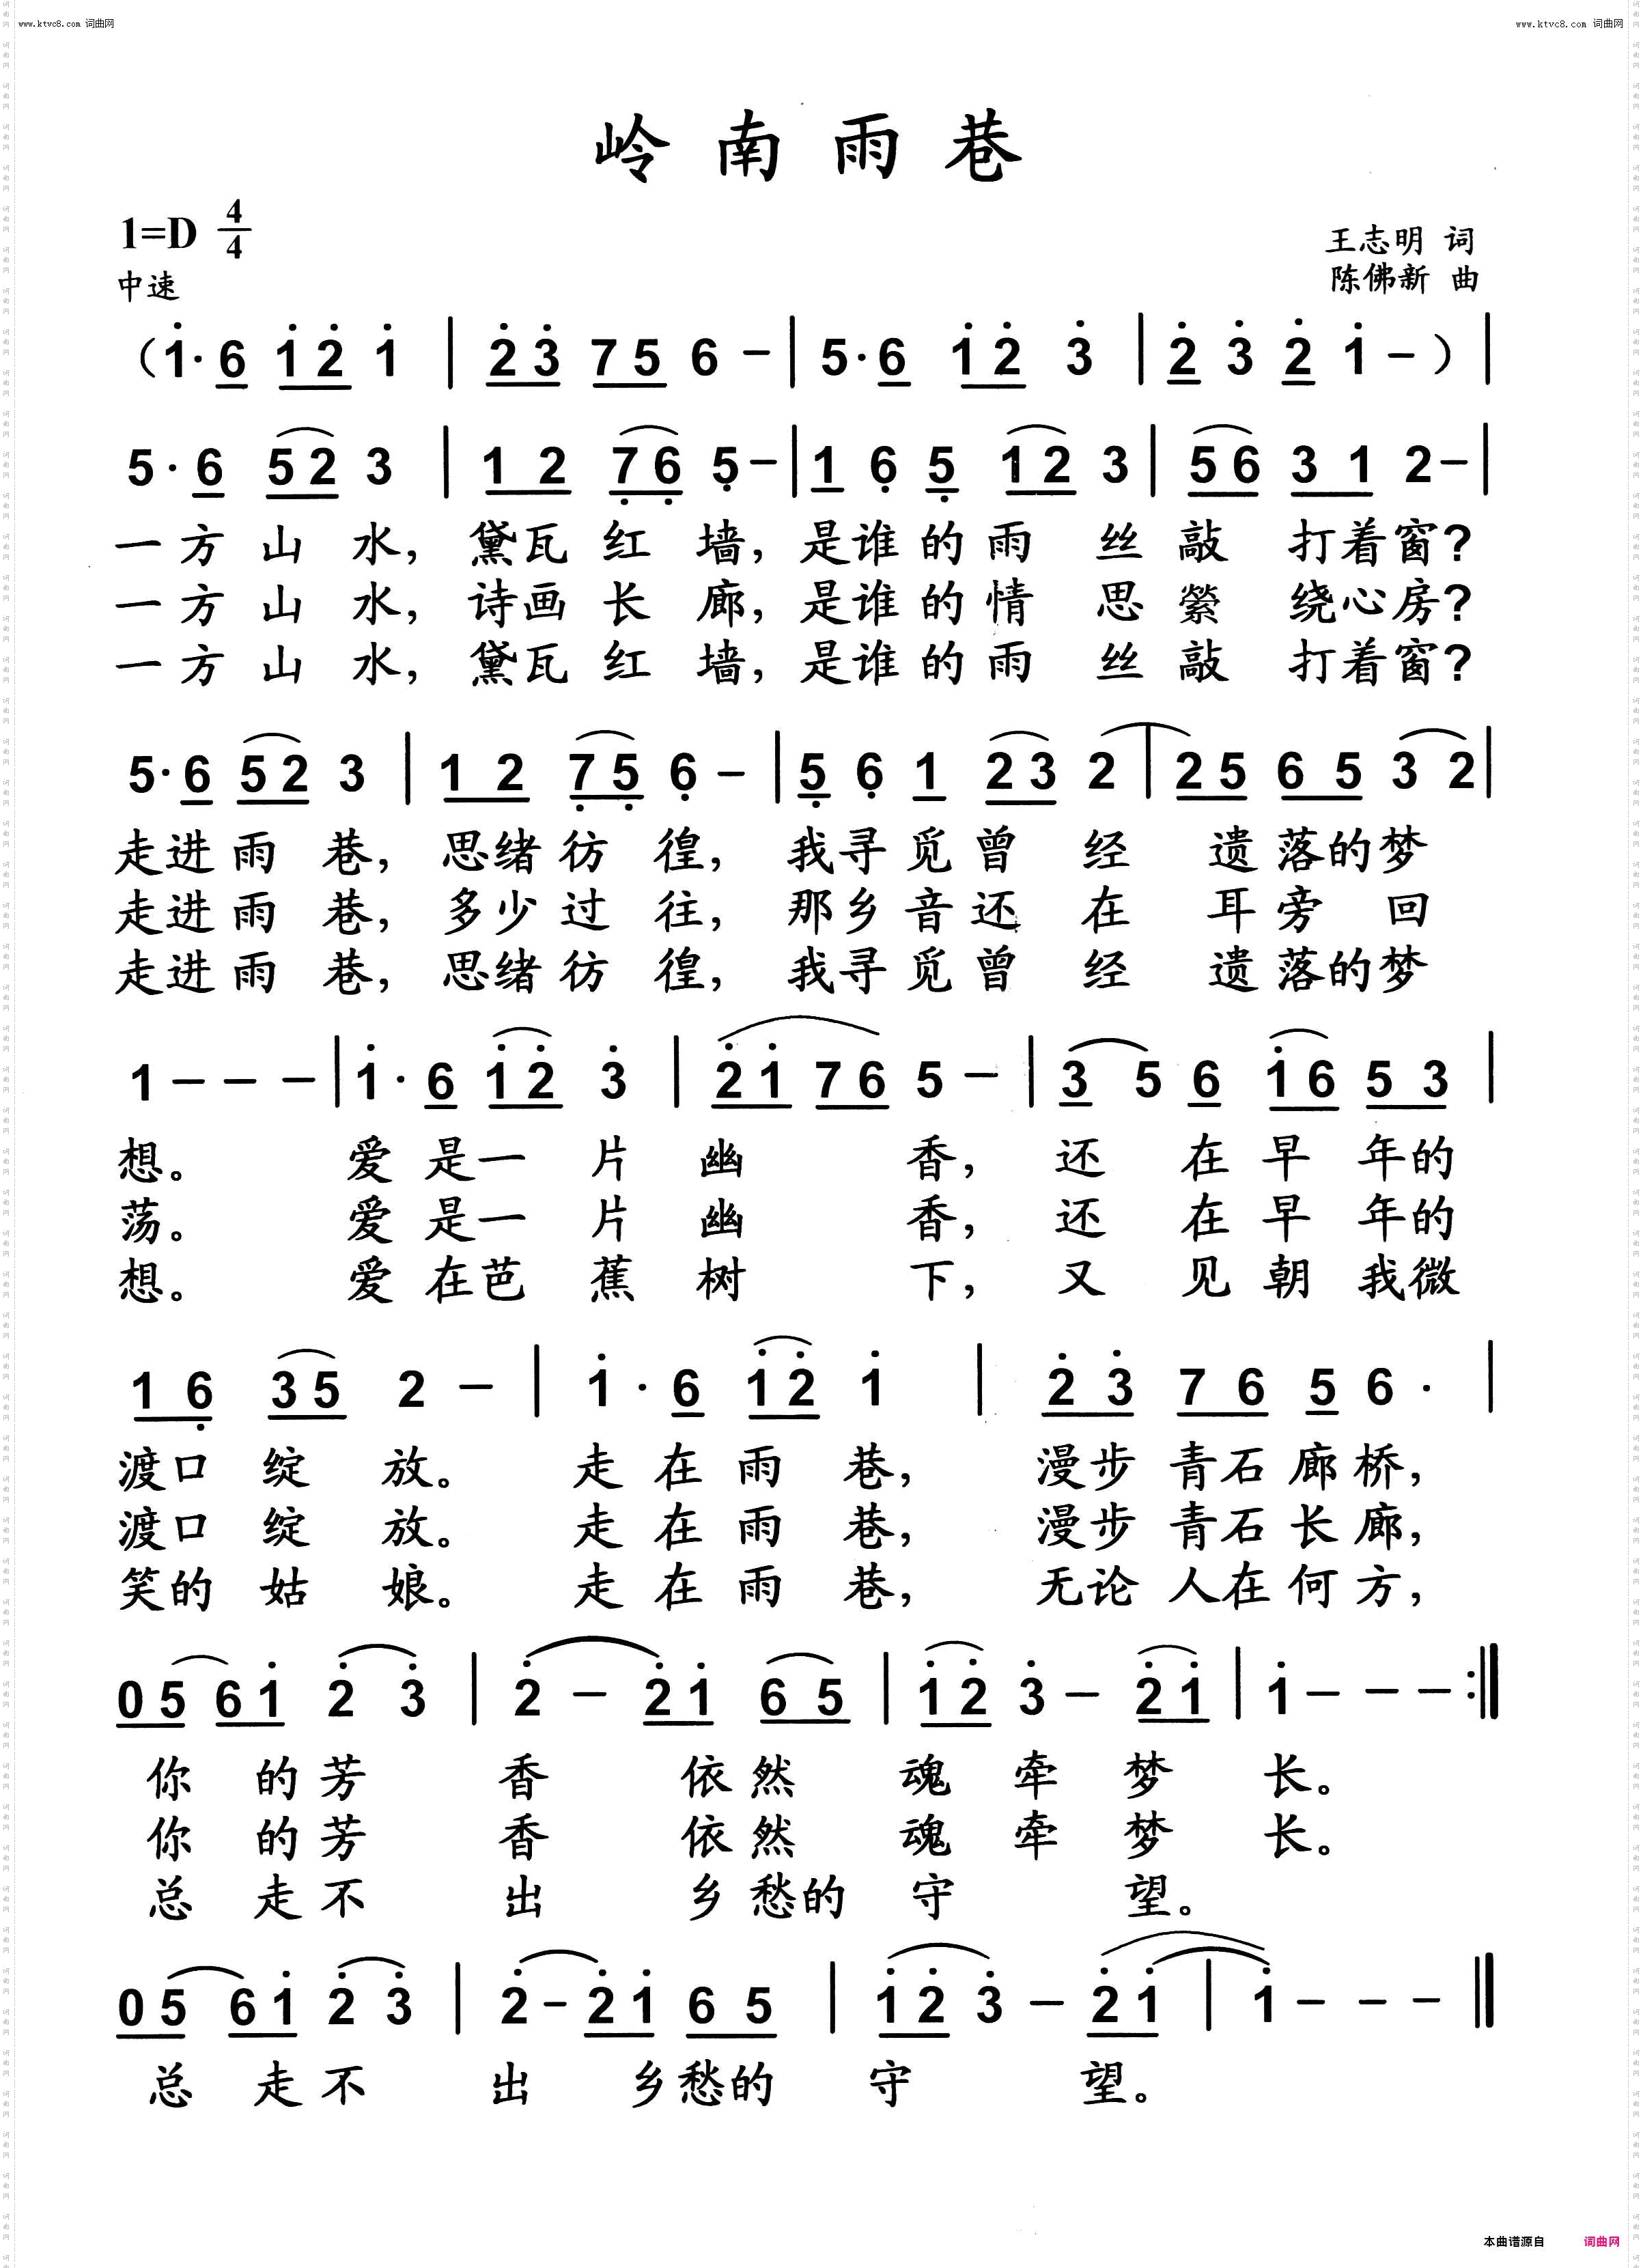 www.ktvc8.com 词曲网
www.ktvc8.com 词曲网
岭南雨巷
1=D 4/4
中速
王志明 词
陈佛新 曲
（1·6 12 1 | 23 75 6 - | 5·6 12 3 | 2 3 2 1 - ）|
5·6 52 3 | 12 76 5 - | 1 6 5 12 3 | 56 31 2 - |
一方山水，黛瓦红墙，是谁的雨丝敲打着窗？
一方山水，诗画长廊，是谁的情思萦绕心房？
一方山水，黛瓦红墙，是谁的雨丝敲打着窗？
5·6 52 3 | 12 75 6 - | 5 6 1 23 2 | 25 65 3 2 |
走进雨巷，思绪彷徨，我寻觅曾经遗落的梦
走进雨巷，多少过往，那乡音还在耳旁回
走进雨巷，思绪彷徨，我寻觅曾经遗落的梦
1 - - - | 1·6 12 3 | 21 76 5 - | 3 5 6 16 53 |
想。爱是一片幽香，还在早年的
荡。爱是一片幽香，还在早年的
想。爱在芭蕉树下，又见朝我微
16 35 2 - | 1·6 12 1 | 23 76 5 6· |
渡口绽放。走在雨巷，漫步青石廊桥，
渡口绽放。走在雨巷，漫步青石长廊，
笑的姑娘。走在雨巷，无论人在何方，
05 61 2 3 | 2 - 21 65 | 12 3 - 21 | 1 - - - :‖
你的芳香依然魂牵梦长。
你的芳香依然魂牵梦长。
总走不出乡愁的守望。
05 61 2 3 | 2 - 21 65 | 12 3 - 21 | 1 - - - ‖
总走不出乡愁的守望。
本曲谱源自 词曲网